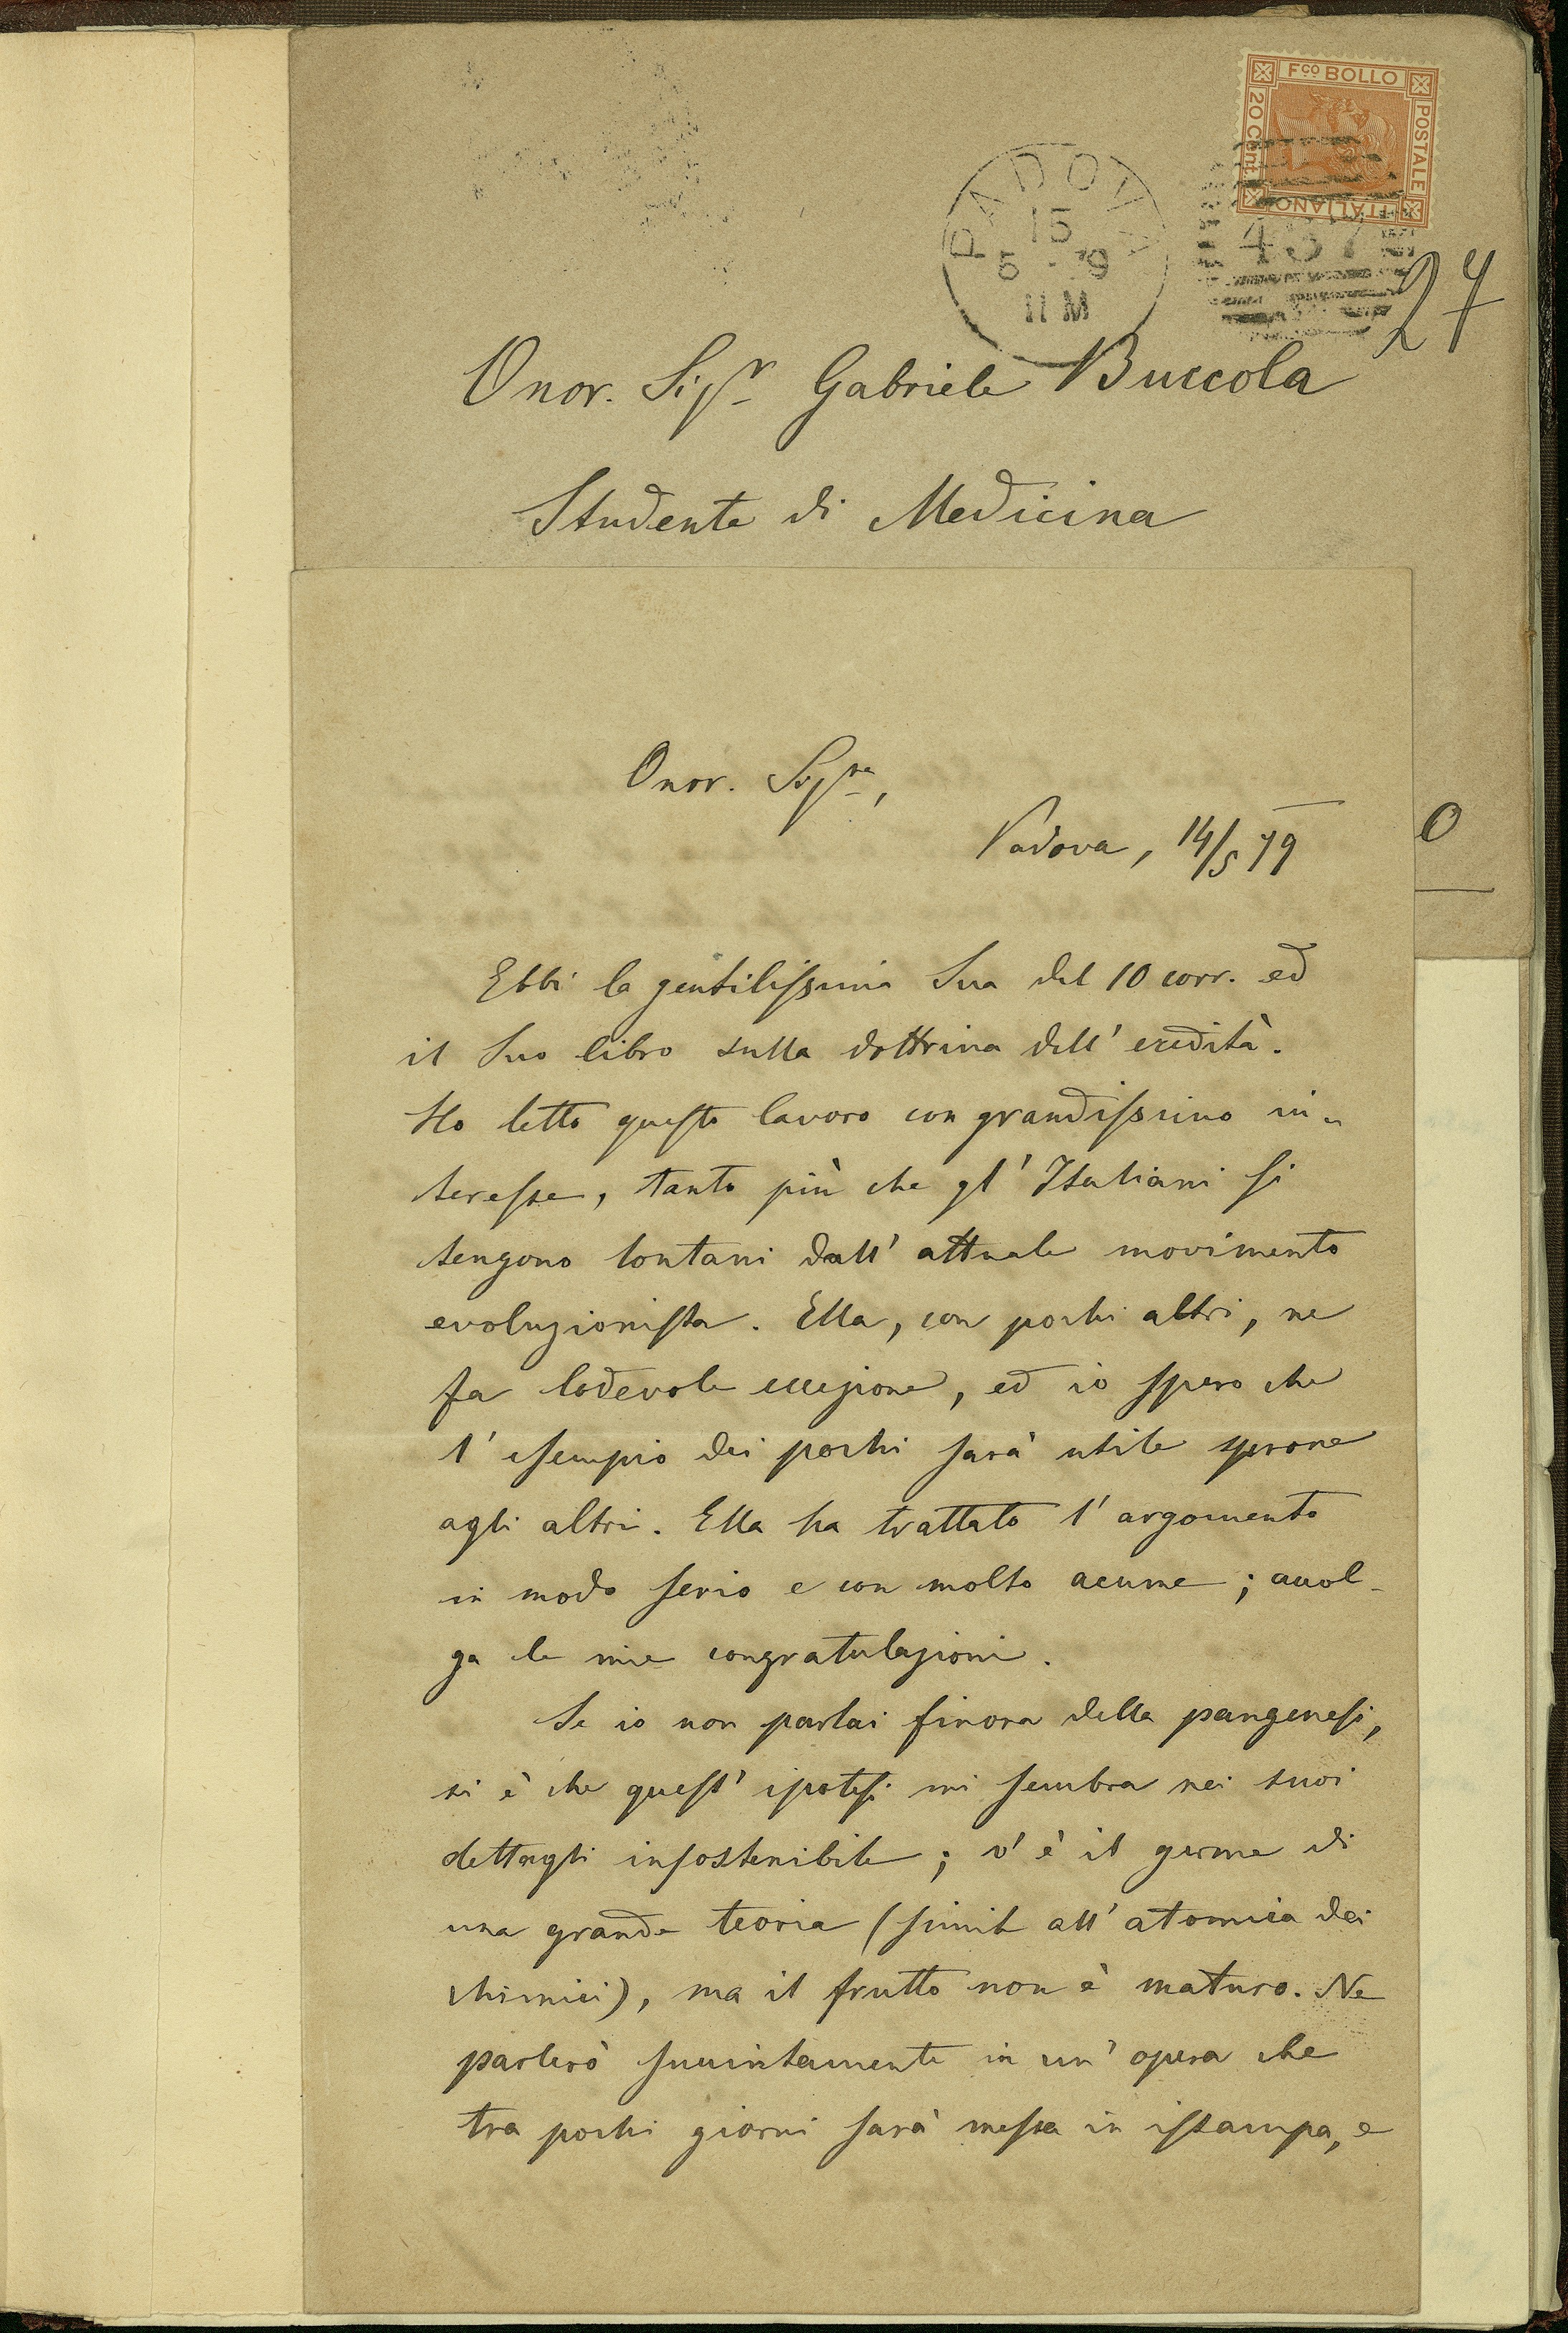 Fco BOLLO
POSTALE
ITALIANO
20 Cent.
PADOVA
15
5 - 79
11 M
437
27
Onor. Sigr Gabriele Buccola
Studente di Medicina
O
Onor. Sigre,
Padova, 14/5 79
Ebbi la gentilissima Sua del 10 corr. ed
il Suo libro sulla dottrina dell' eredità.
Ho letto questo lavoro con grandissimo in„
teresse, tanto più che gl' Italiani si
tengono lontani dall' attuale movimento
evoluzionista. Ella, con pochi altri, ne
fa lodevole eccezione, ed io spero che
l' esempio dei pochi sarà utile sprone
agli altri. Ella ha trattato l' argomento
in modo serio e con molto acume; accol-
ga le mie congratulazioni.
Se io non parlai finora della pangenesi,
si è che quest' ipotesi mi sembra nei suoi
dettagli insostenibile; v' è il germe di
una grande teoria (simile all' atomica dei
chimici), ma il frutto non è maturo. Ne
parlerò succintamente in un' opera che
tra pochi giorni sarà messa in istampa, e